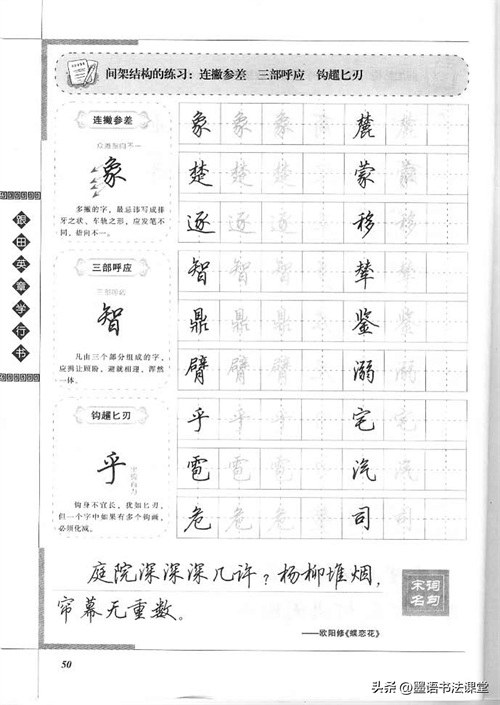 间架结构的练习：连撇参差 三部呼应 钩趯匕刃
连撇参差
象
多撇的字，最忌讳写成排
牙之状、车轨之形，应发笔不
同，指向不一。
三部呼应
三部呼应
智
凡由三个部分组成的字，
应揖让顾盼，避就相迎，浑然
一体。
钩趯匕刃
乎
钩身不宜长，犹如匕刃，
但一个字中如果有多个钩画，
必须化减。
象 象 象 麓 麓
楚 楚 楚 蒙 蒙
逐 逐 逐 移 移
智 智 智 辇 辇
鼎 鼎 鼎 鉴 鉴
臂 臂 臂 溺 溺
乎 乎 乎 宅 宅
雹 雹 雹 汽 汽
危 危 危 司 司
跟田英章学行书
庭院深深深几许？杨柳堆烟，
帘幕无重数。
宋词
名句
——欧阳修《蝶恋花》
50
头条 @墨语书法课堂